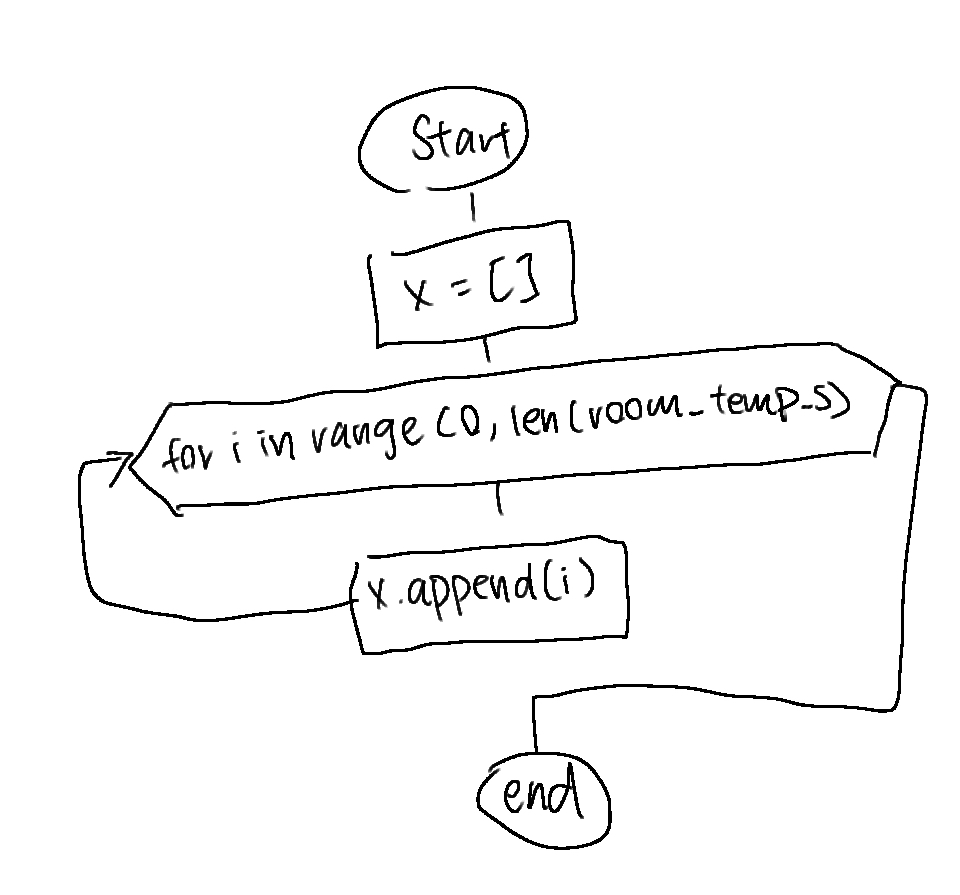 Start
x = []
for i in range (0, len(room_temp_s)
x.append(i)
end